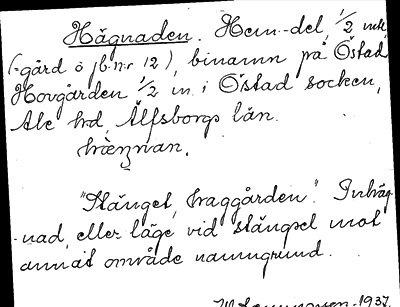 Hägnaden. Hem.-del, 1/2 mtl,
(-gård å jb.n:r 12), binamn på Östad
Hovgården 1/2 m. i Östad socken,
Ale hd, Älfsborgs län.
"Stänget, hraggården". Inhäg-
nad, eller läge vid stängsel mot
annat område namngrund.
1937.